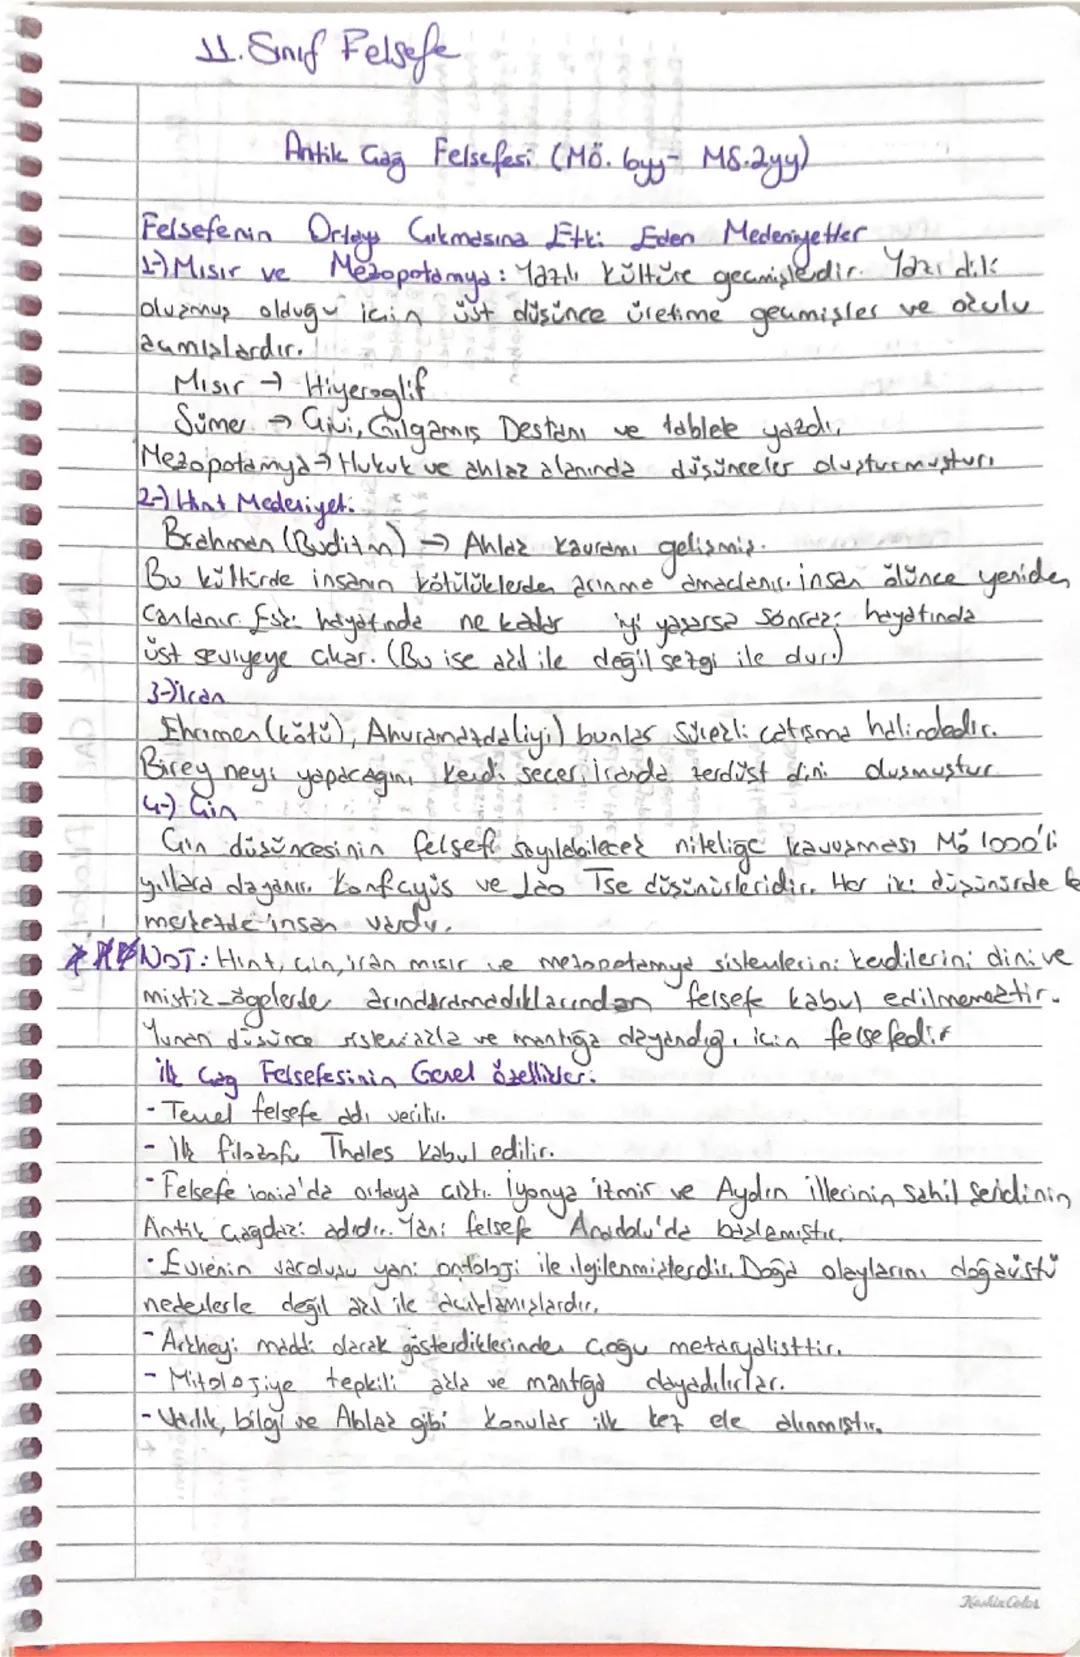 11. Sınıf Felsefe
Antik Çağ Felsefesi (MÖ. 6yy - MS.2yy)
Felsefenin Ortaya Çıkmasına Etki Eden Medeniyetler
1-) Mısır ve Mezopotamya: Yazılı kültüre geçmişlerdir. Yazı dili
oluşmuş olduğu için üst düşünce üretime geçmişler ve okulu
açmışlardır.
Mısır → Hiyeroglif
Sümer → Çivi, Gılgamış Destanı ve tablete yazdı.
Mezopotamya → Hukuk ve ahlak alanında düşünceler oluşturmuştur.
2-) Hint Medeniyeti:
Brahman (Budizm) → Ahlak kavramı gelişmiş.
Bu kültürde insanın kötülüklerden arınma amaçlanır. insan ölünce yeniden
canlanır. Eski hayatında ne kadar iyi yaşarsa sonraki hayatında
üst seviyeye çıkar. (Bu ise akıl ile değil sezgi ile olur.)
3-) İran
Ehrimen (kötü), Ahuramazda (iyi) bunlar sürekli çatışma halindedir.
Birey neyi yapacağını kendi seçer. İranda zerdüşt dini oluşmuştur
4-) Çin
Çin düşüncesinin felsefi sayılabilecek niteliğe kavuşması MÖ 1000'li
yıllara dayanır. Konfçyüs ve Lao Tse düşünürleridir. Her iki düşünürde
merkezde insan vardır.
NOT: Hint, çin, iran mısır ve mezopotamya sistemlerini kendilerini dini ve
mistik ögelerde arındıramadıklarından felsefe kabul edilmemektir.
Yunan düşünce sistemi akla ve mantığa dayandığı için felsefedir
İlk Çağ Felsefesinin Genel özellikleri:
- Temel felsefe adı verilir.
- İlk filozofu Thales kabul edilir.
- Felsefe ionia'da ortaya çıktı. İyonya izmir ve Aydın illerinin sahil şeridinin
Antik Çağdaki adıdır. Yani felsefe Anadolu'da başlamıştır.
- Evrenin varoluşu yani ontoloji ile ilgilenmişlerdir. Doğa olaylarını doğaüstü
nedenlerle değil akıl ile açıklamışlardır.
- Arkheyi maddi olarak gösterdiklerinden çoğu metaryalisttir.
- Mitolojiye tepkili akla ve mantığa dayadılırlar.
- Varlık, bilgi ve Ahlak gibi konular ilk kez ele alınmıştır.
KeskinColor